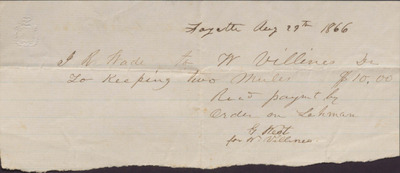 Fayette Aug 29th 1866
J R Wade to W Villines Dr
To Keeping two Mules $10.00
Recd payent by
Order on Lehman
G West
for W Villines